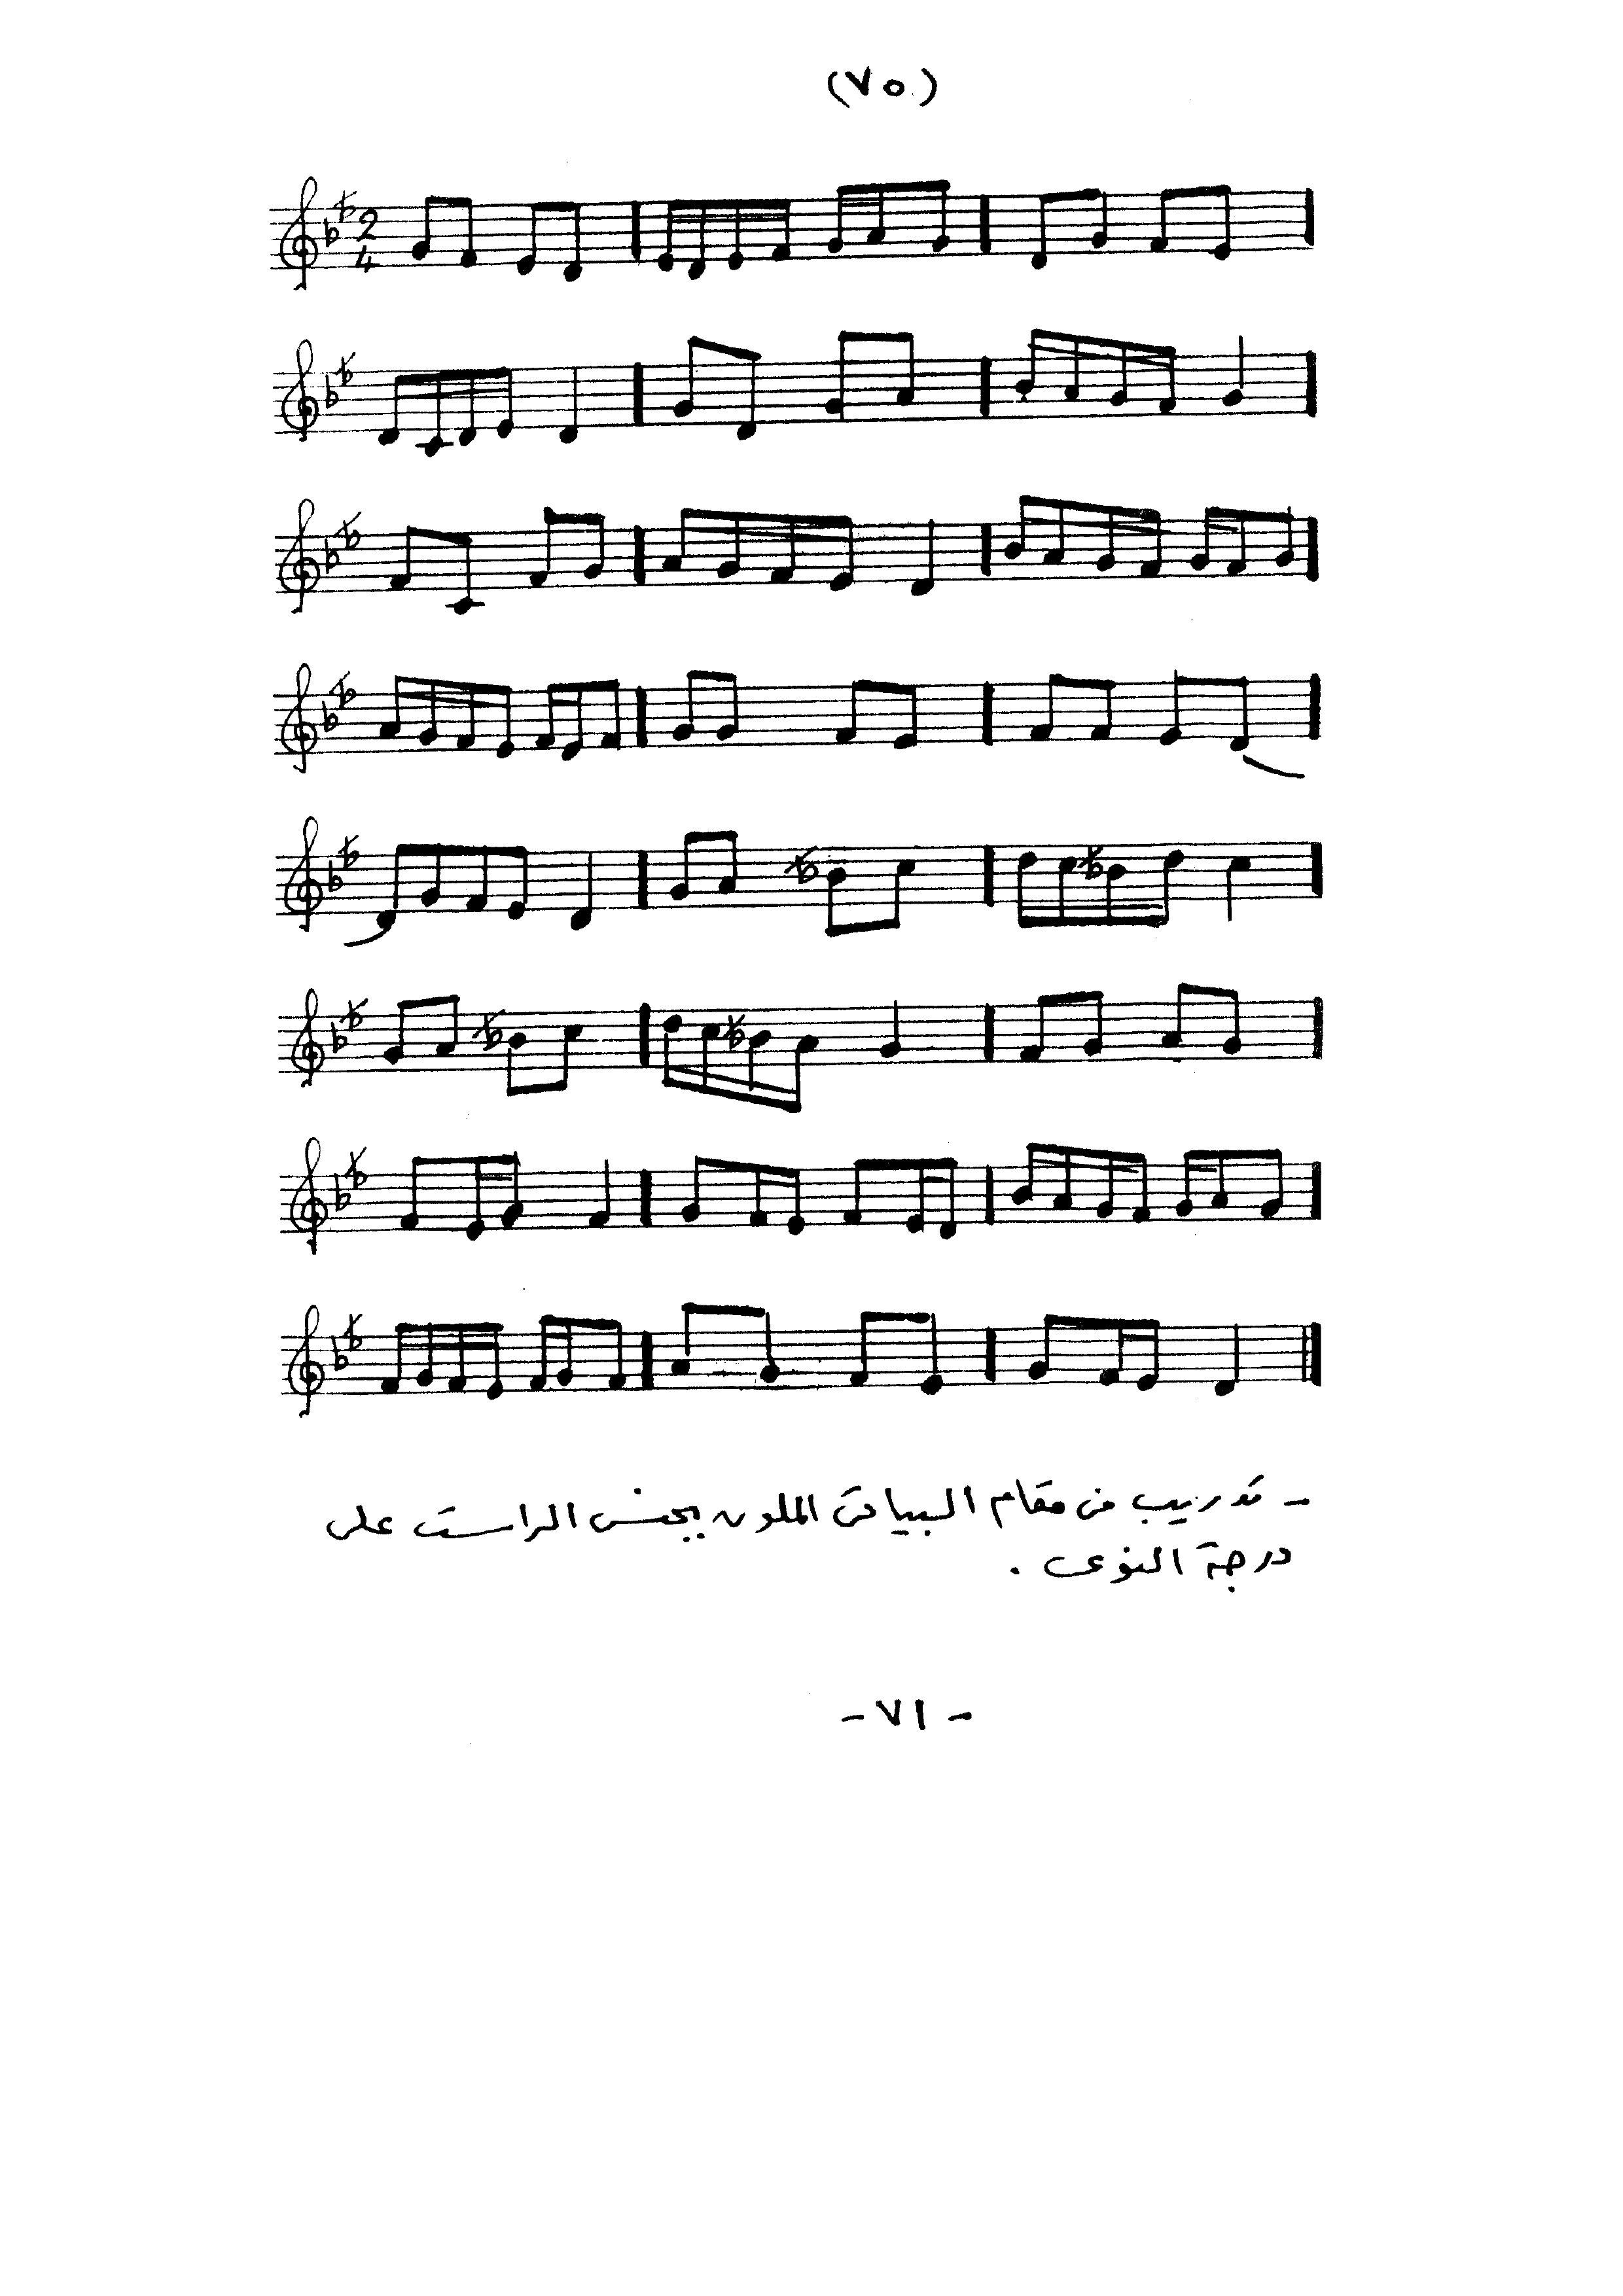 (٧٥)
2
4
- تدريب من مقام البياتى الملون بجنس الراست على
درجة النوى .
- ٧١ -